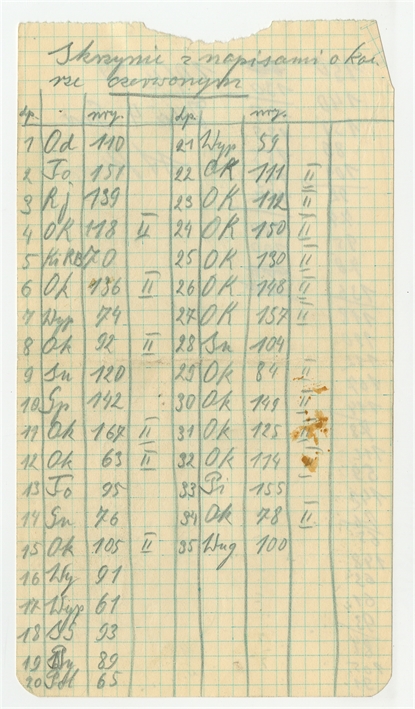 Skrzynie z napisami o kolo-
rze czerwonym
lp. nry. lp. nry.
1 Od 110 21 Wyp 59
2 To 151 22 OK 111 II
3 Rj 139 23 OK 112 II
4 OK 118 II 24 OK 150 II
5 KiRB 70 25 OK 130 II
6 Ok 136 II 26 OK 148 II
7 Wyp 74 27 OK 157 II
8 Ok 92 II 28 Sn 104
9 Sn 120 29 Ok 84 II
10 Gp 142 30 Ok 149 II
11 Ok 167 II 31 Ok 125
12 Ok 63 II 32 Ok 114
13 To 95 33 Pi 155
14 Sn 76 34 Ok 78 II
15 Ok 105 II 35 Wag 100
16 Wy 91
17 Wyp 61
18 93
19 89
20 65